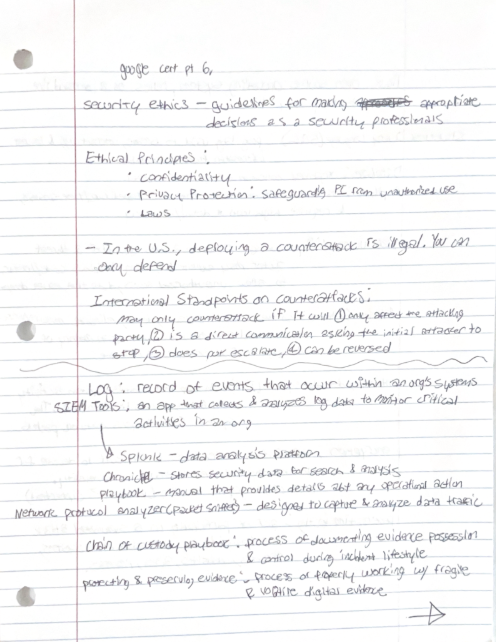 google cert pt 6,
security ethics - guidelines for making appropriate
decisions as a security professionals
Ethical Principles:
• confidentiality
• Privacy Protection: safeguarding PI from unauthorized use
• Laws
- In the U.S., deploying a counterattack is illegal. You can
only defend
International Standpoints on counterattacks:
may only counterattack if it will ① only affect the attacking
party, ② is a direct communication asking the initial attacker to
stop, ③ does not escalate, ④ can be reversed
Log: record of events that occur within an org's systems
SIEM Tools: an app that collects & analyzes log data to monitor critical
activities in an org
Splunk - data analysis platform
Chronicle - stores security data for search & analysis
playbook - manual that provides details abt any operational action
Network protocol analyzer (packet sniffer) - designed to capture & analyze data traffic
chain of custody playbook: process of documenting evidence possession
& control during incident lifestyle
protecting & preserving evidence: process of properly working w/ fragile
& volatile digital evidence